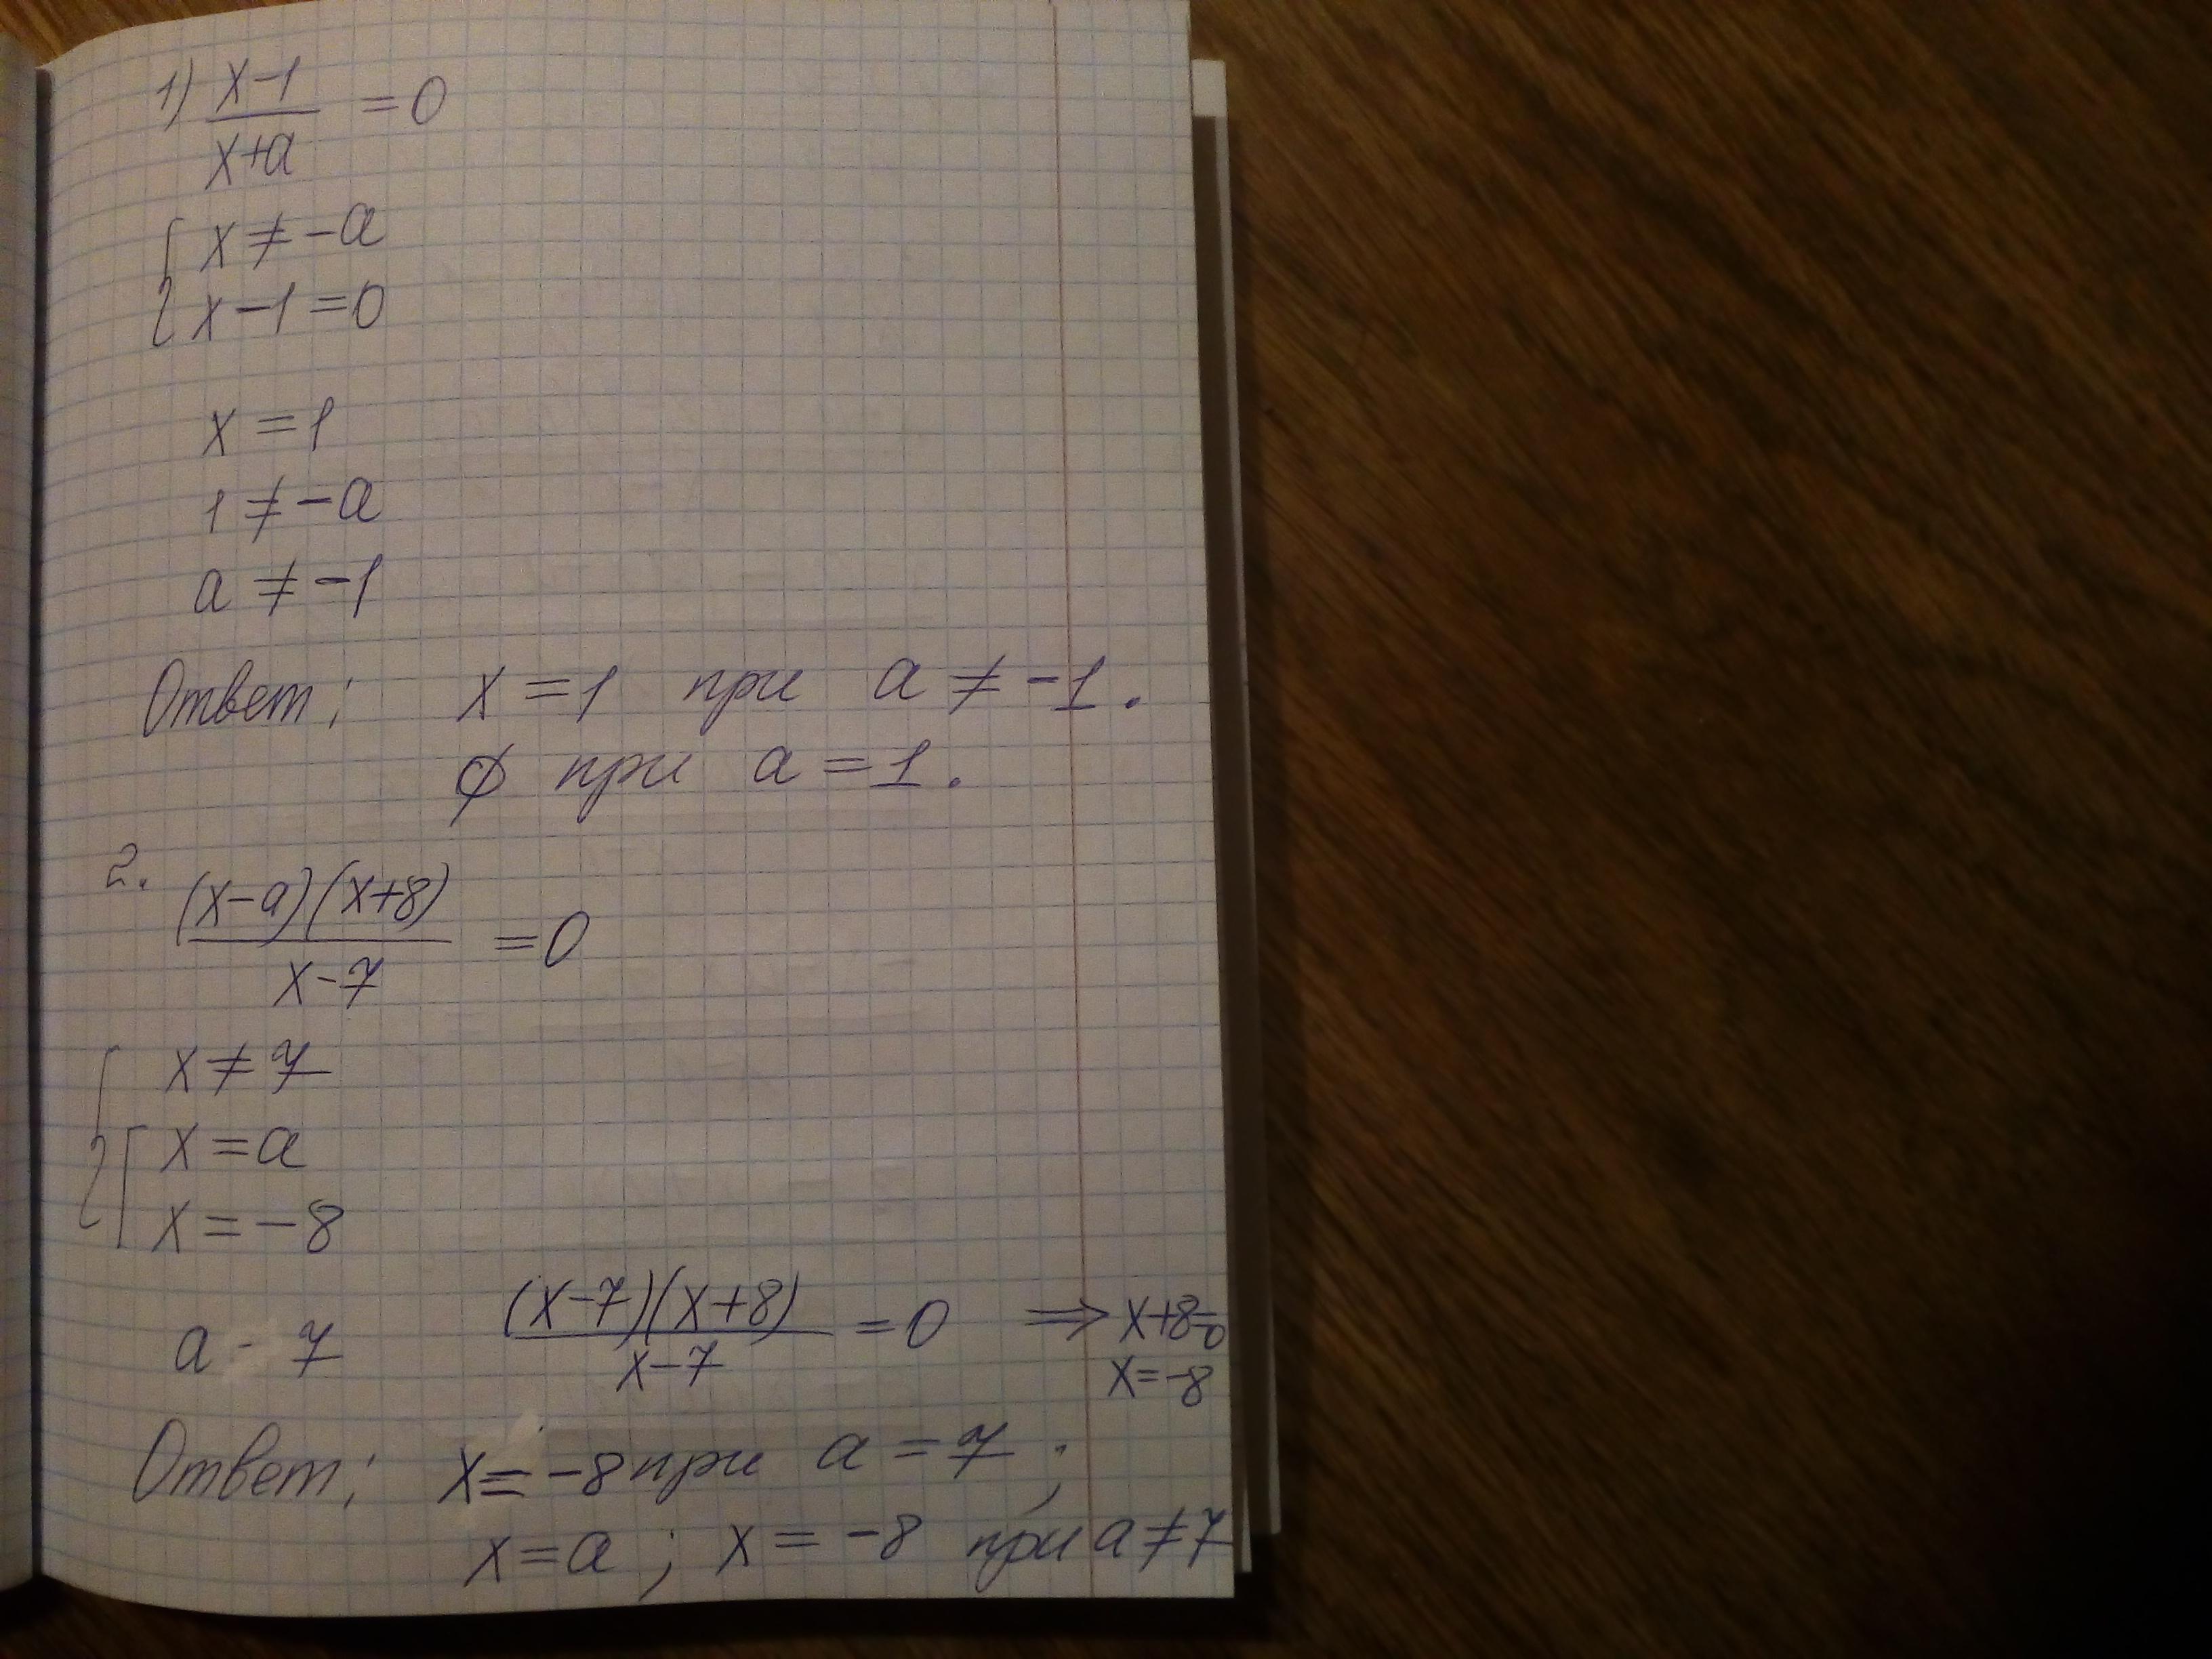 1) x-1
x+a = 0
x ≠ -a
x-1 = 0
x = 1
1 ≠ -a
a ≠ -1
Ответ: x = 1 при a ≠ -1.
∅ при a = 1.
2. (x-a)(x+8)
x-7 = 0
x ≠ 7
x = a
x = -8
a - 7 (x-7)(x+8) / x-7 = 0 ⟹ x+8=0
x=-8
Ответ: x = -8 при a = 7;
x = a; x = -8 при a ≠ 7